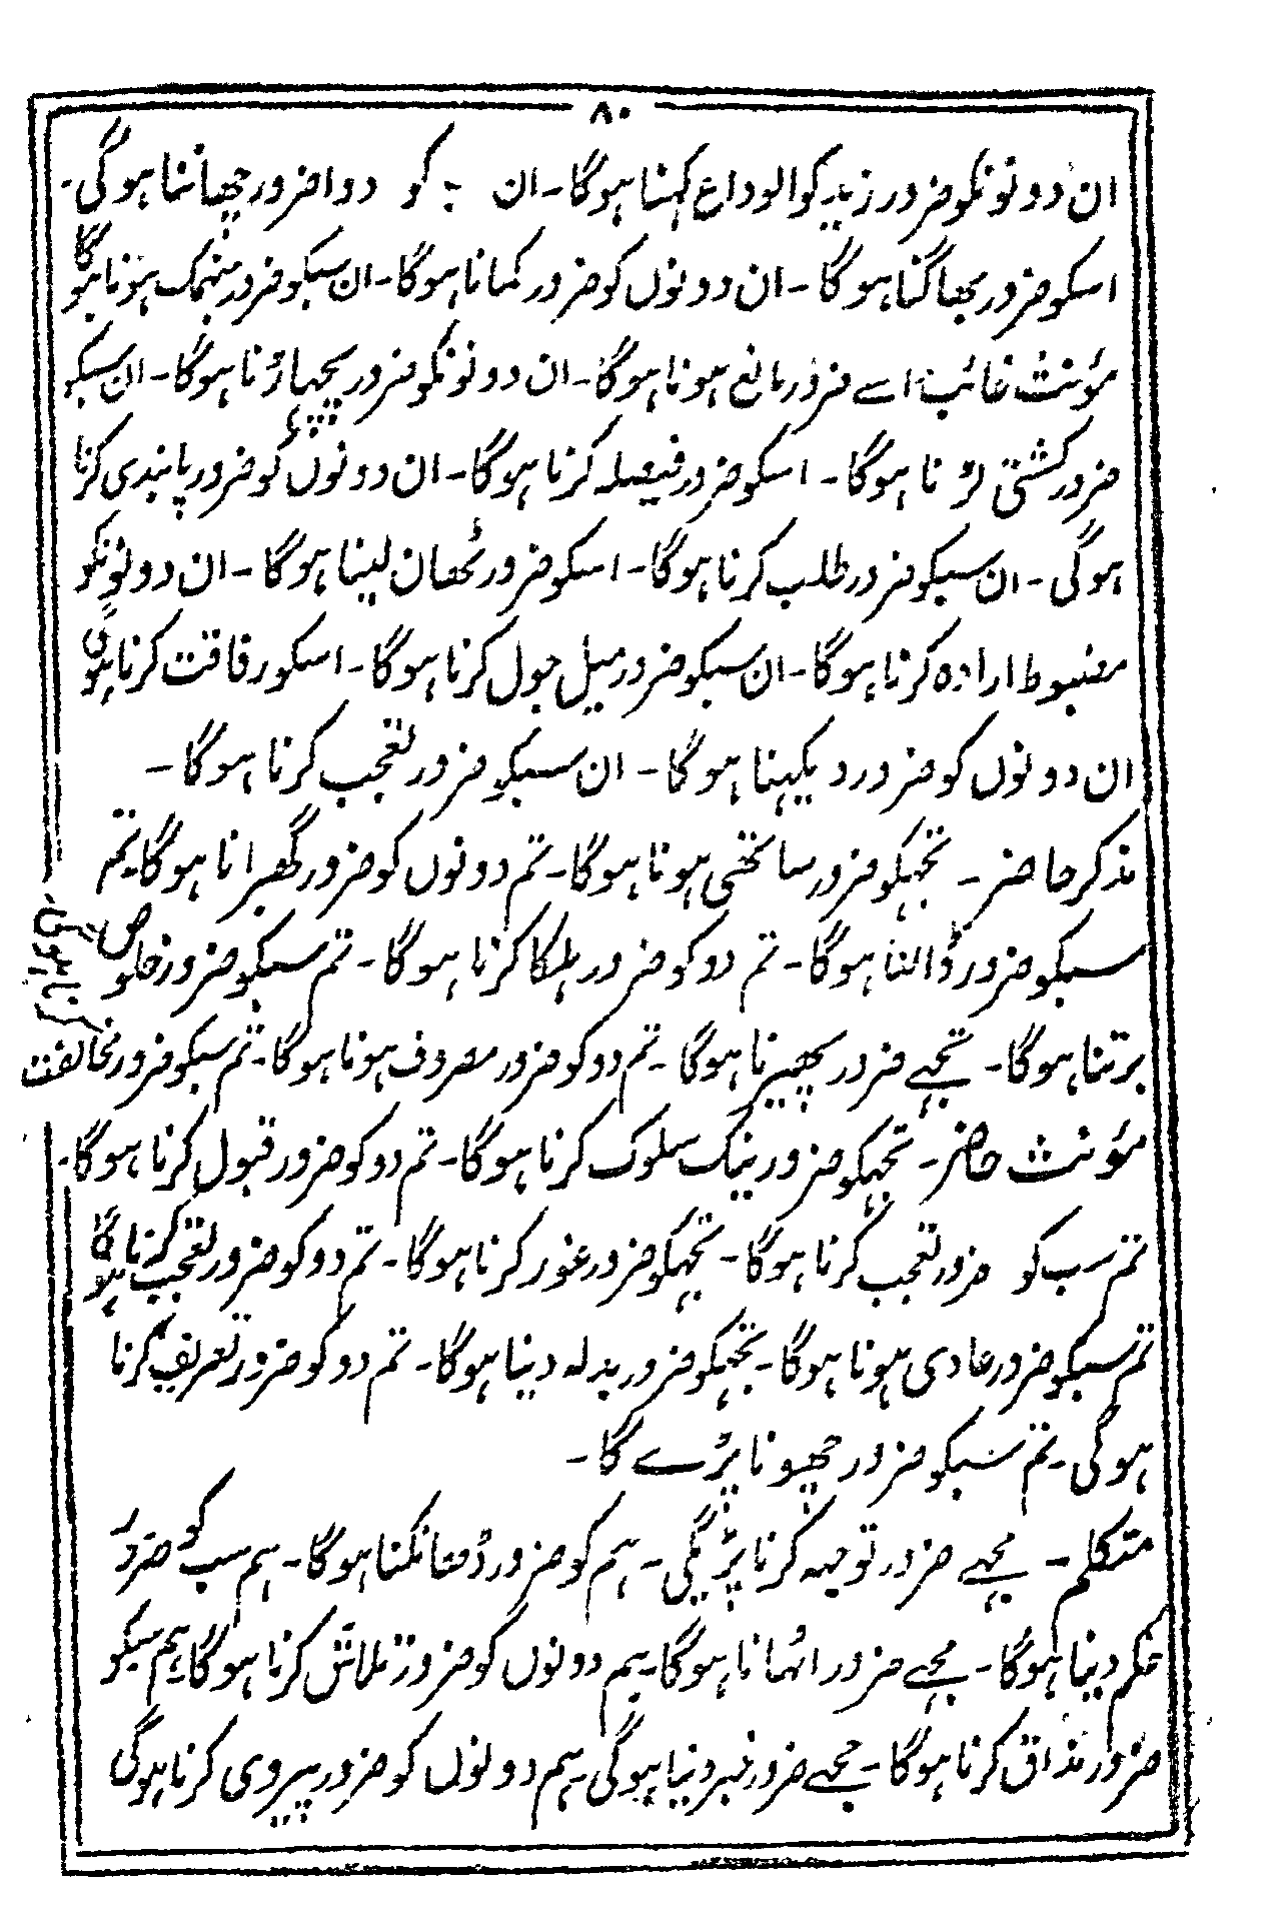 ۸۰
ان دونونکو ضرور زید کو الوداع کہنا ہوگا۔ ان :۔ کو دوا ضرور چھاننا ہوگی۔
اسکو ضرور بھاگنا ہوگا ۔ ان دونوں کو ضرور کمانا ہوگا۔ ان سبکو ضرور منہمک ہونا ہوگا
مؤنث غائب: اسے ضرور مانع ہونا ہوگا۔ ان دونونکو ضرور پچھاڑنا ہوگا۔ ان سبکو
ضرور کشتی لڑنا ہوگا ۔ اسکو ضرور فیصلہ کرنا ہوگا۔ ان دونوں کو ضرور پابندی کرنا
ہوگی ۔ ان سبکو ضرور طلب کرنا ہوگا۔ اسکو ضرور ٹھان لینا ہوگا ۔ ان دونونکو
مضبوط ارادہ کرنا ہوگا۔ ان سبکو ضرور میل جول کرنا ہوگا۔ اسکو رفاقت کرنا ہوگی
ان دونوں کو ضرور دیکہنا ہوگا ۔ ان سبکو ضرور تعجب کرنا ہوگا ۔
مذکر حاضر ۔ تجہکو ضرور ساتھی ہونا ہوگا۔ تم دونوں کو ضرور گھبرانا ہوگا۔ تم
سبکو ضرور ڈالنا ہوگا ۔ تم دو کو ضرور ہلکا کرنا ہوگا ۔ تم سبکو ضرور خلوص
برتنا ہوگا ۔ تجہے ضرور پھیرنا ہوگا ۔ تم دو کو ضرور مصروف ہونا ہوگا۔ تم سبکو ضرور مخالفت
کرنا ہوگی۔
مؤنث حاضر ۔ تجہکو ضرور نیک سلوک کرنا ہوگا۔ تم دو کو ضرور قبول کرنا ہوگا۔
تم سب کو ضرور تعجب کرنا ہوگا ۔ تجہکو ضرور غور کرنا ہوگا۔ تم دو کو ضرور تعجب کرنا ہوگا
تم سبکو ضرور عادی ہونا ہوگا ۔ تجہکو ضرور بدلہ دینا ہوگا ۔ تم دو کو ضرور تعریف کرنا
ہوگی ۔ تم سبکو ضرور چھونا پڑے گا ۔
متکلم ۔ مجہے ضرور توجہہ کرنا پڑیگی ۔ ہم کو ضرور ڈھانکنا ہوگا ۔ ہم سب کو ضرور
حکم دینا ہوگا ۔ مجہے ضرور اٹہانا ہوگا۔ ہم دونوں کو ضرور تلاش کرنا ہوگا۔ ہم سبکو
ضرور مذاق کرنا ہوگا ۔ مجہے ضرور خبر دینا ہوگی۔ ہم دونوں کو ضرور پیروی کرنا ہوگی